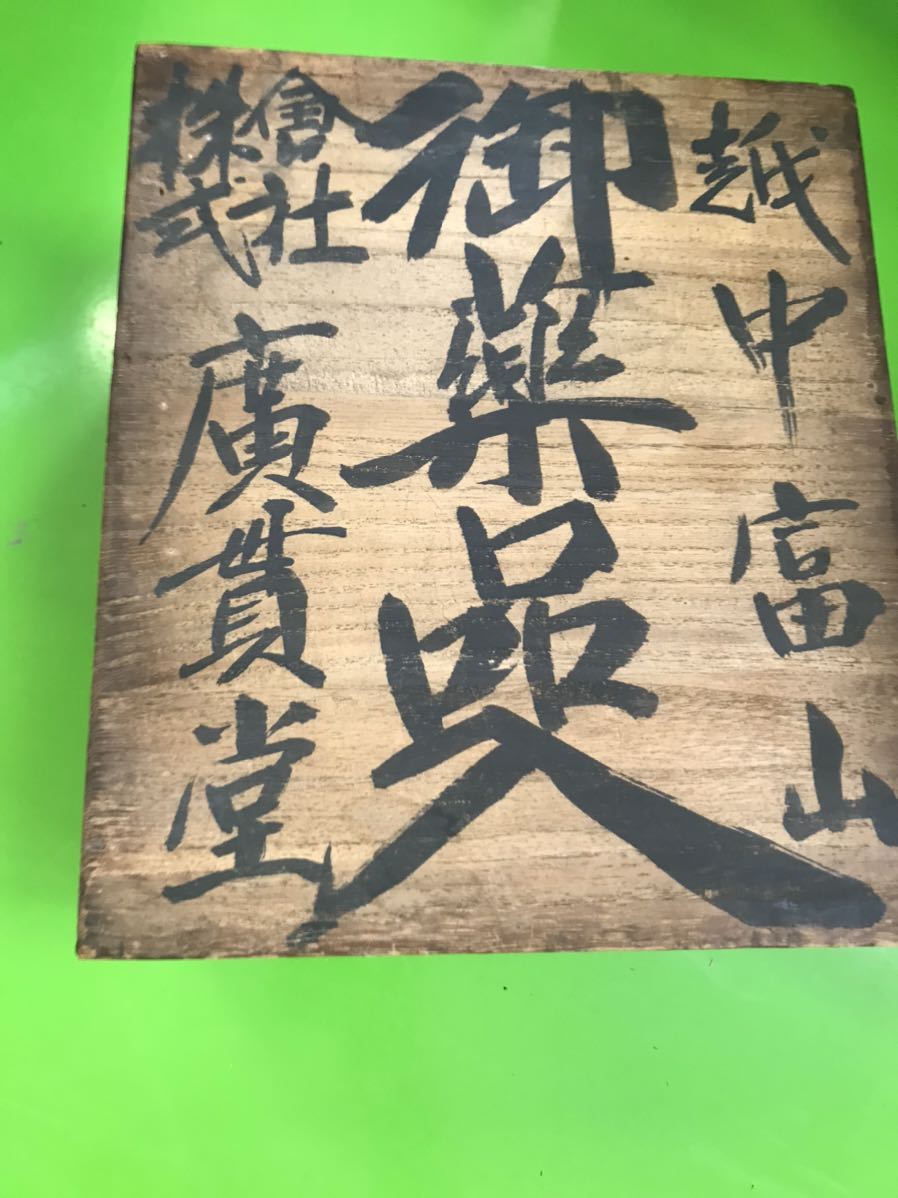 越中富山
御薬品入
株式會社
廣貫堂